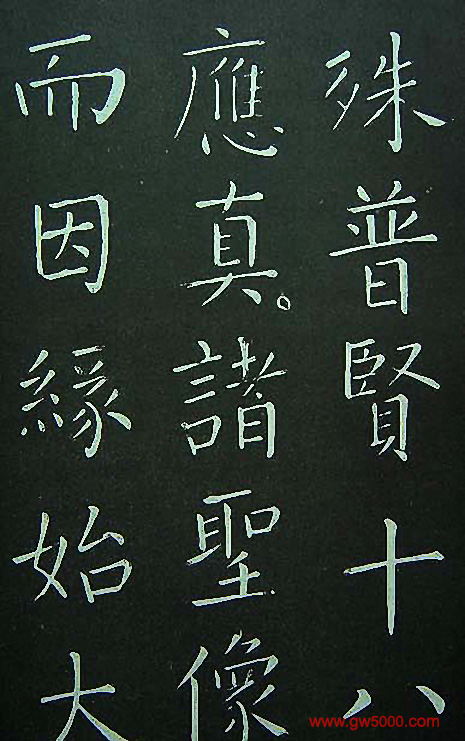 殊普賢十八
應真。諸聖像
而因緣始大
www.gw5000.com